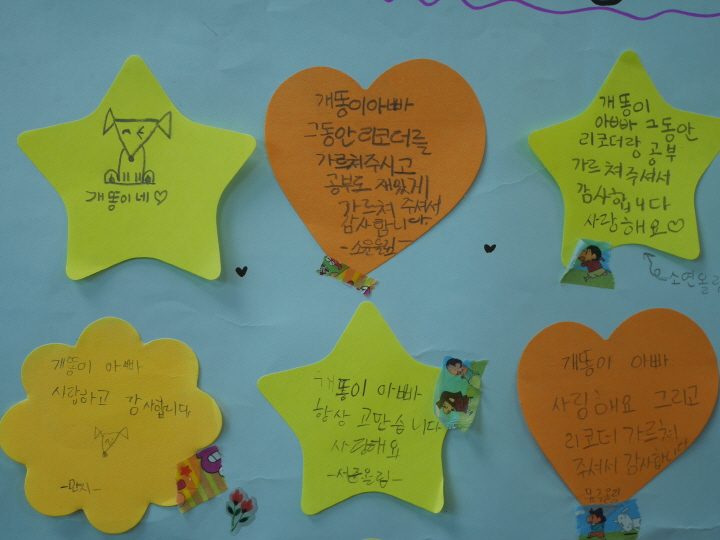 개똥이네♡
개똥이아빠
그동안 리코더를
가르쳐주시고
공부도 재밌게
가르쳐 주셔서
감사합니다.
개똥이
아빠 그동안
리코더랑 공부
가르쳐주셔서
감사합니다
사랑해요♡
소연올림
개똥이 아빠
사랑하고 감사합니다
개똥이 아빠
항상 고맙습니다
사랑해요
개똥이 아빠
사랑해요 그리고
리코더 가르쳐
주셔서 감사합니다